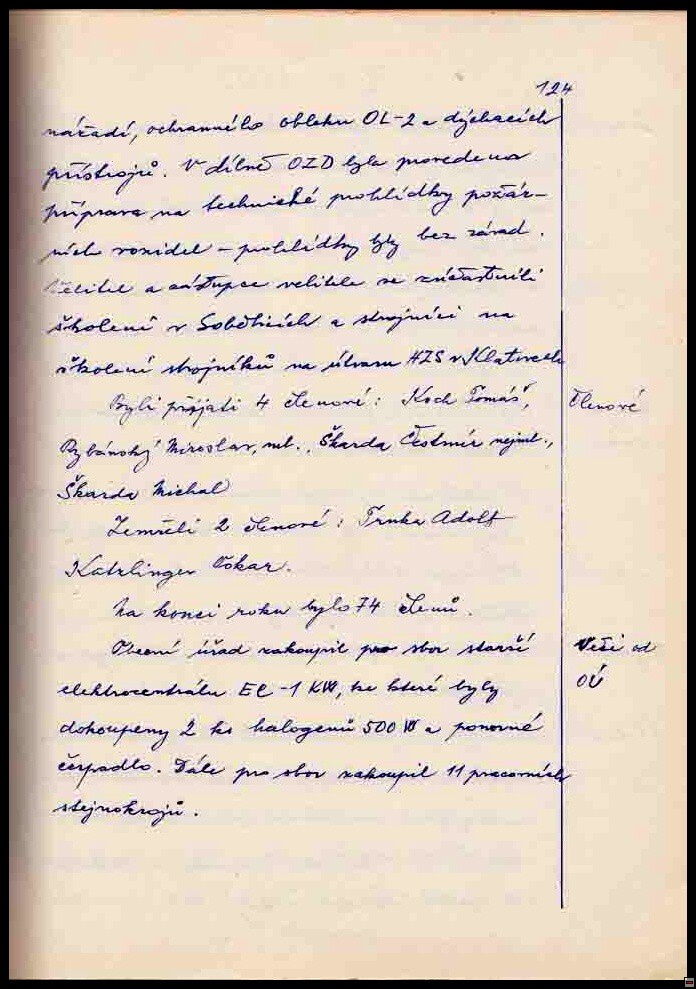 124
nářadí, ochranného obleku OL-2 a dýchacích
přístrojů. V dílně OZD byla provedena
příprava na technické prohlídky požár-
ních vozidel - prohlídky byly bez závad.
Velitel a zástupce velitele se zúčastnili
školení v Soběticích a strojníci na
školení strojníků na útvaru HZS v Klatovech
Byli přijati 4 členové: Koch Tomáš,
Členové
Rybánský Miroslav, ml., Škarda Čestmír nejml.,
Škarda Michal
Zemřeli 2 členové: Trnka Adolf
Katzlinger Oskar.
Na konci roku bylo 74 členů.
Obecní úřad zakoupil pro sbor starší
Věci od
elektrocentrálu EC-1 KW, ke které byly
OÚ
dokoupeny 2 ks halogenů 500 W a ponorné
čerpadlo. Dále pro sbor zakoupil 11 pracovních
stejnokrojů.